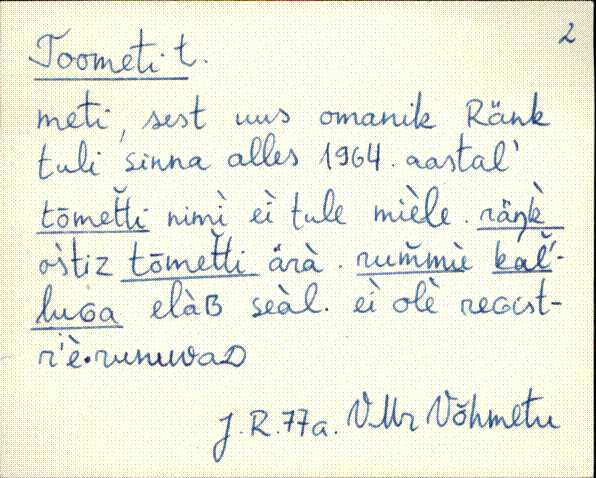 2
Toometi t.
meti, sest uus omanik Ränk
tuli sinna alles 1964. aastal'
tōmet̆t̆i nimì eì tule mièle. räŋk̀
os̀tiz tōmet̆t̆i ärà. rum̆m̆iè kal̆'-
luGa elàB seàl. eì olè reGist-
r'è•runuvaD
J.R. 77a. VMr Võhmetu